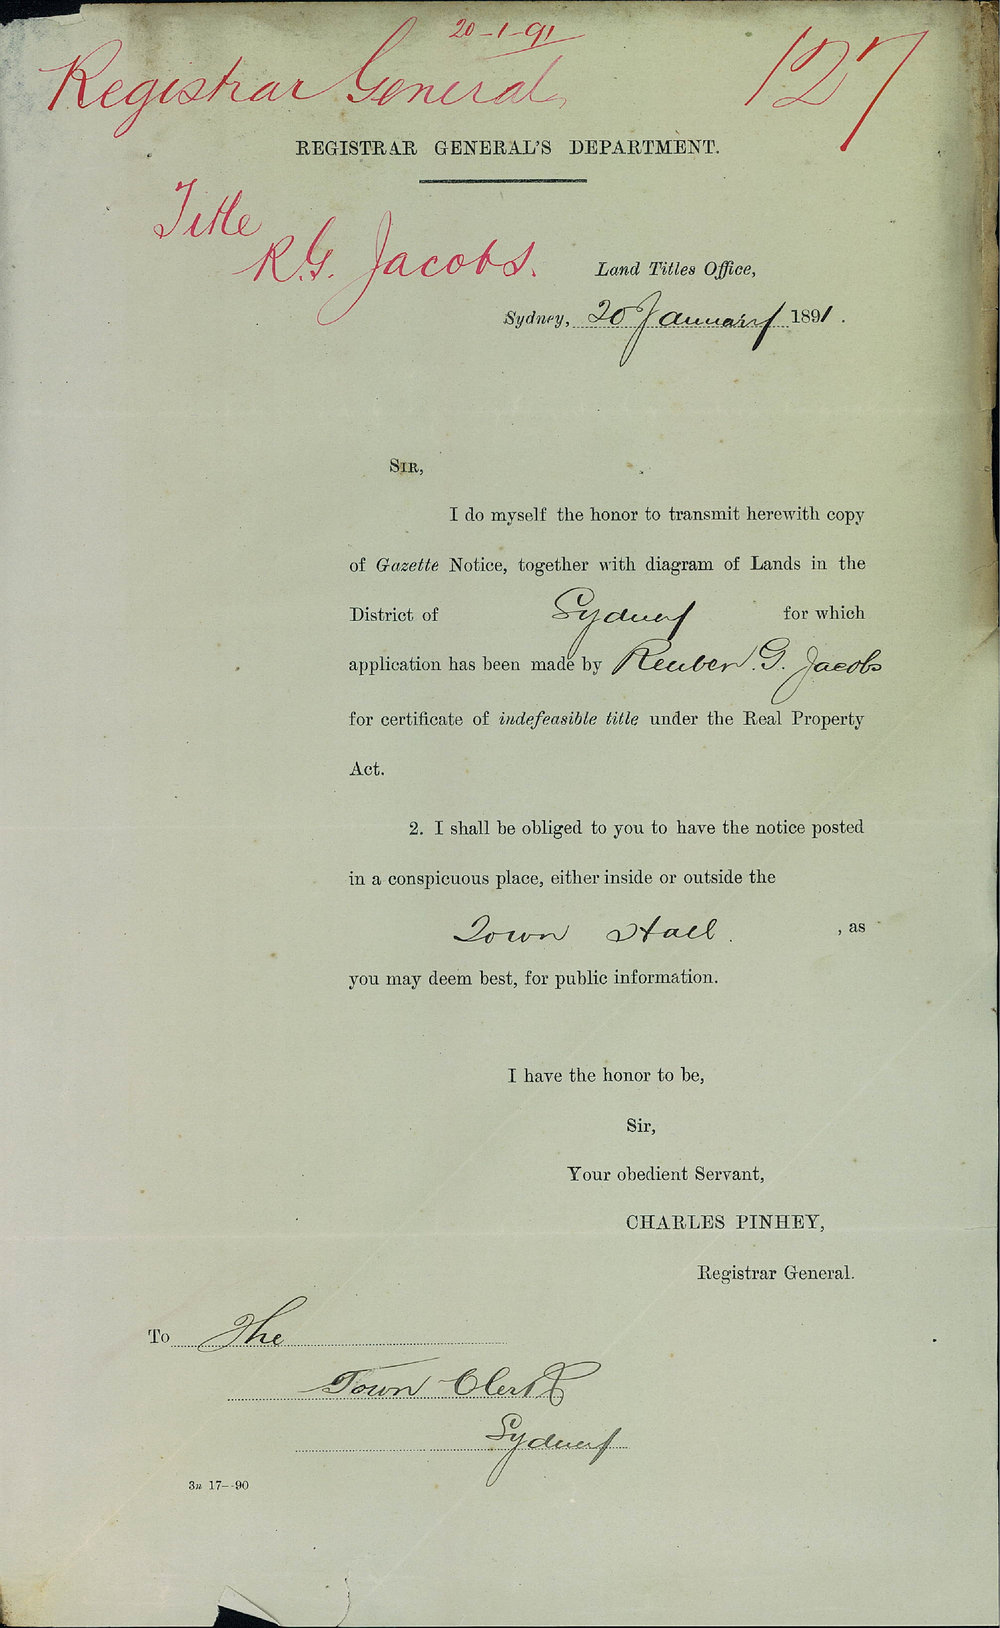 20-1-91
Registrar General, 127
REGISTRAR GENERAL'S DEPARTMENT.
Title
R.G. Jacobs.
Land Titles Office,
Sydney, 20 January 1891.
SIR,
I do myself the honor to transmit herewith copy
of Gazette Notice, together with diagram of Lands in the
District of Sydney for which
application has been made by Reuben. G. Jacobs
for certificate of indefeasible title under the Real Property
Act.
2. I shall be obliged to you to have the notice posted
in a conspicuous place, either inside or outside the
Town Hall. , as
you may deem best, for public information.
I have the honor to be,
Sir,
Your obedient Servant,
CHARLES PINHEY,
Registrar General.
To The
Town Clerk
Sydney
3n 17--90